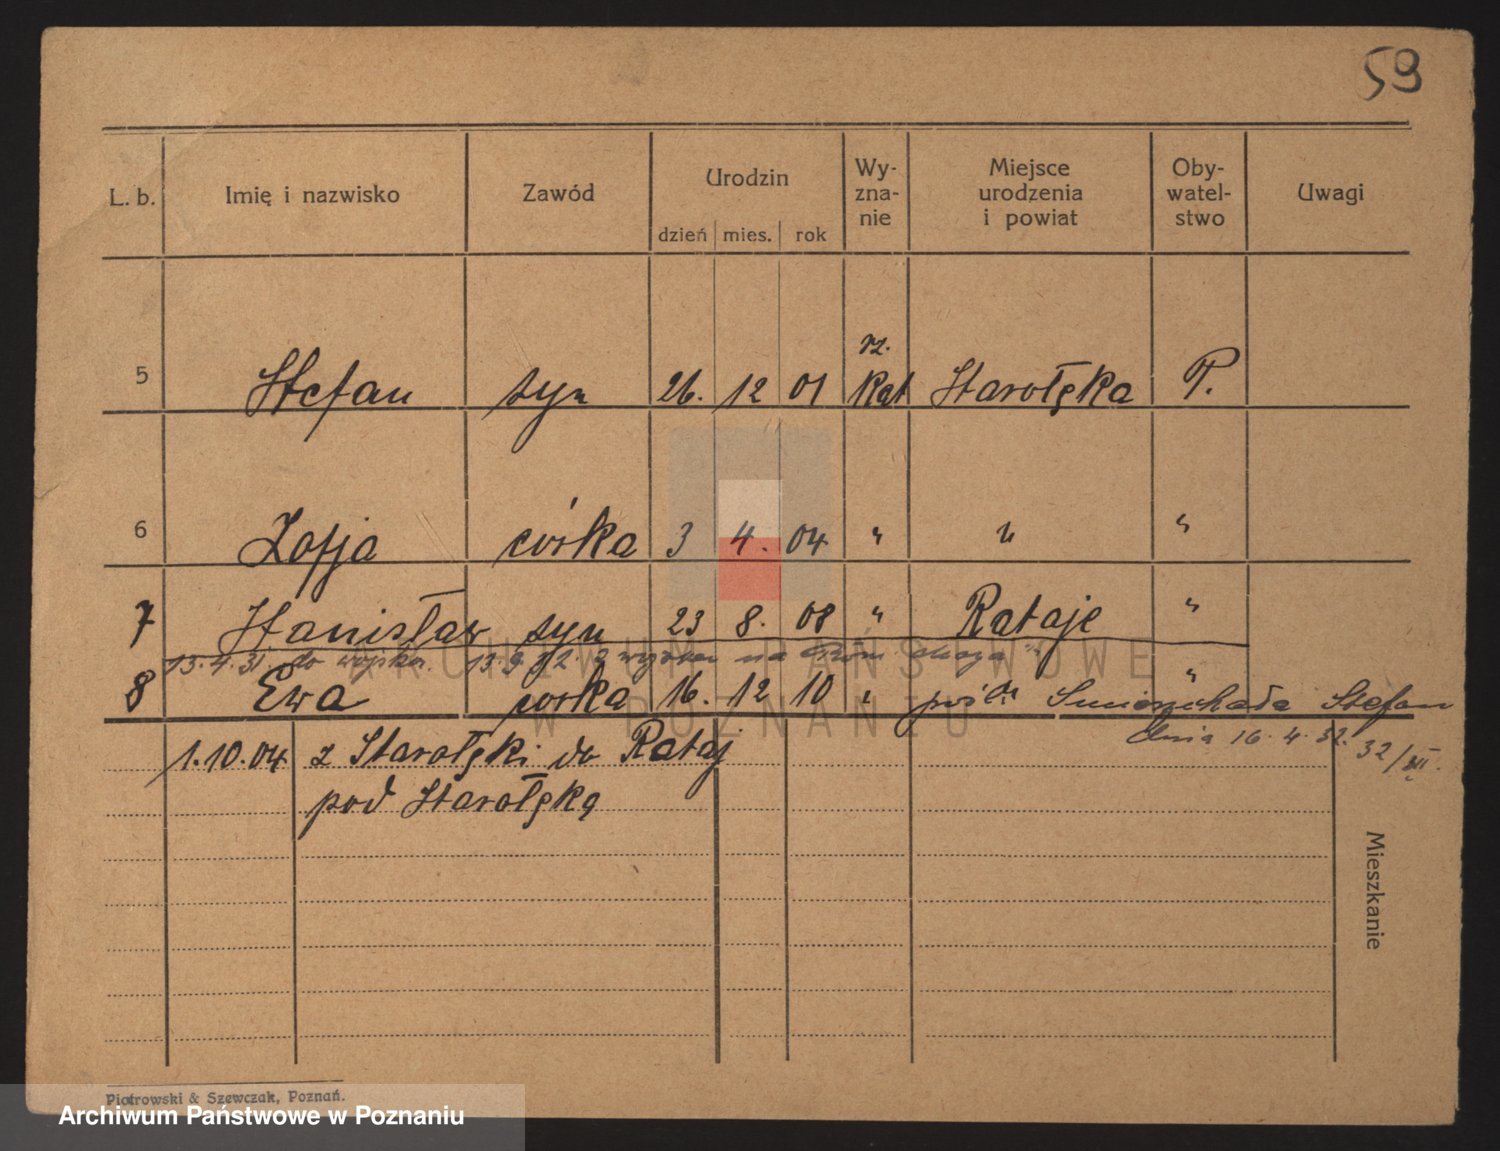 59
L. b. Imię i nazwisko Zawód Urodzin dzień mies. rok Wy-zna-nie Miejsce urodzenia i powiat Oby-watel-stwo Uwagi
5 Stefan syn 26. 12 01 rz. Kat Starołęka P.
6 Zofja córka 3 4. 04 " " "
7 Stanisław syn 23 8. 08 " Rataje "
13.4.31. do wojska. 13.9.32. z na
8 Ewa córka 16. 12 10 " "
Stefan
dnia 16.4.32. 32/III.
1.10.04 z Starołęki do Rataj
pod Starołęką
Mieszkanie
Piotrowski & Szewczak, Poznań.
ARCHIWUM PAŃSTWOWE
W POZNANIU
Archiwum Państwowe w Poznaniu